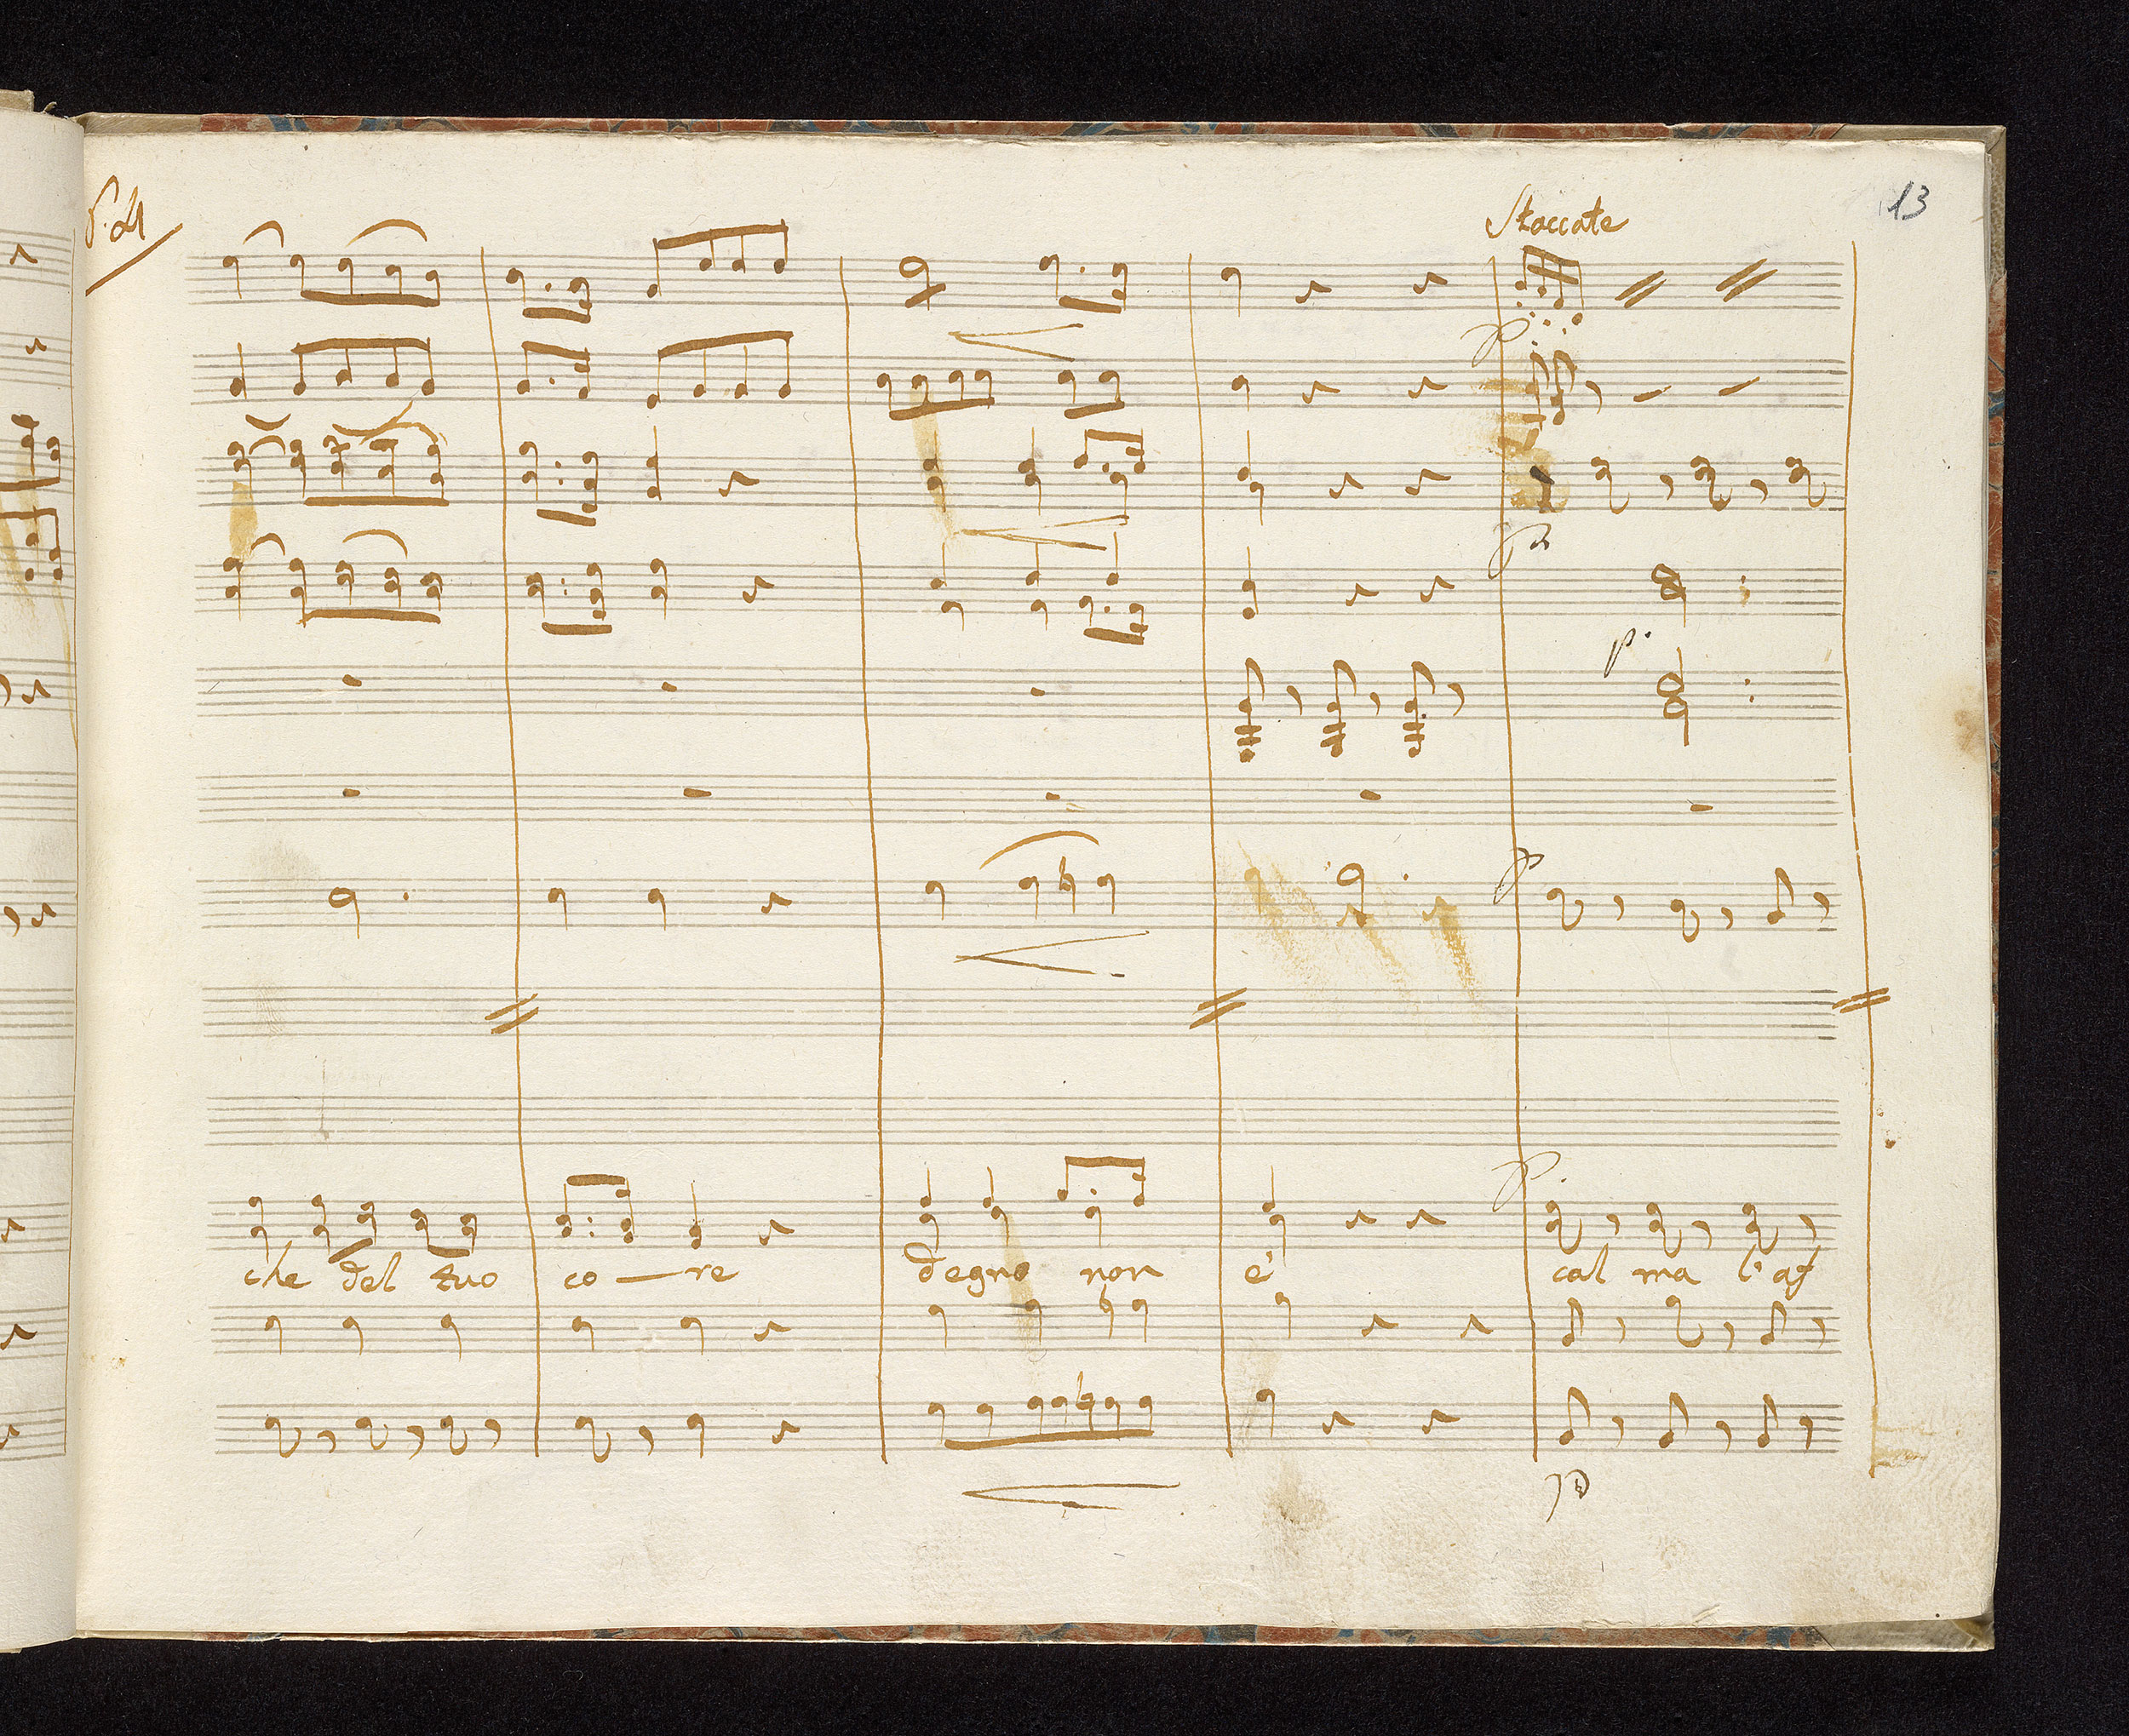 13
Staccate
p
p
p.
p
p.
che del tuo co — re degno non e' cal ma l'af
p